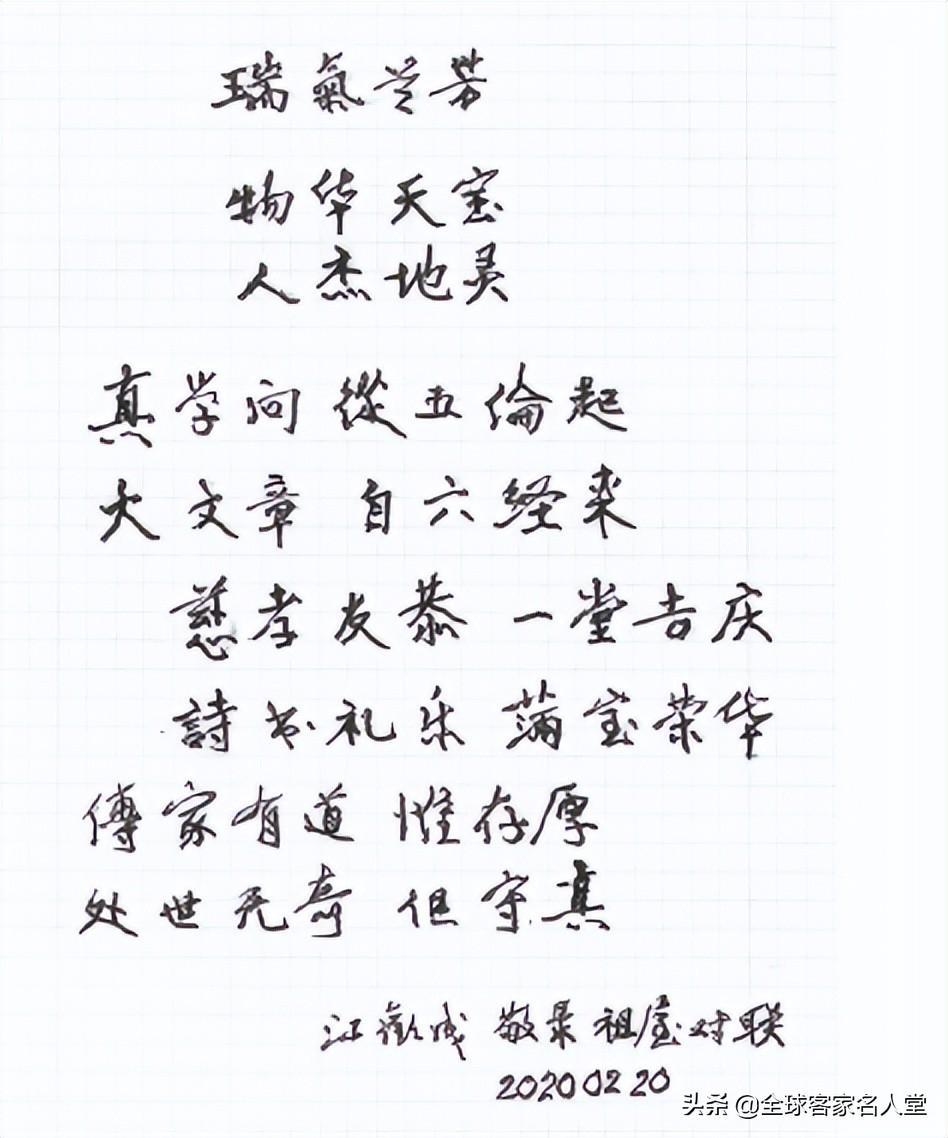 瑞氣兰芬
物华天宝
人杰地灵
真学问 從五倫起
大文章 自六经来
慈孝友恭 一堂吉庆
詩书礼乐 满室荣华
傳家有道 惟存厚
处世无奇 但守真
江歡成 敬录祖屋对联
2020 02 20
头条 @全球客家名人堂